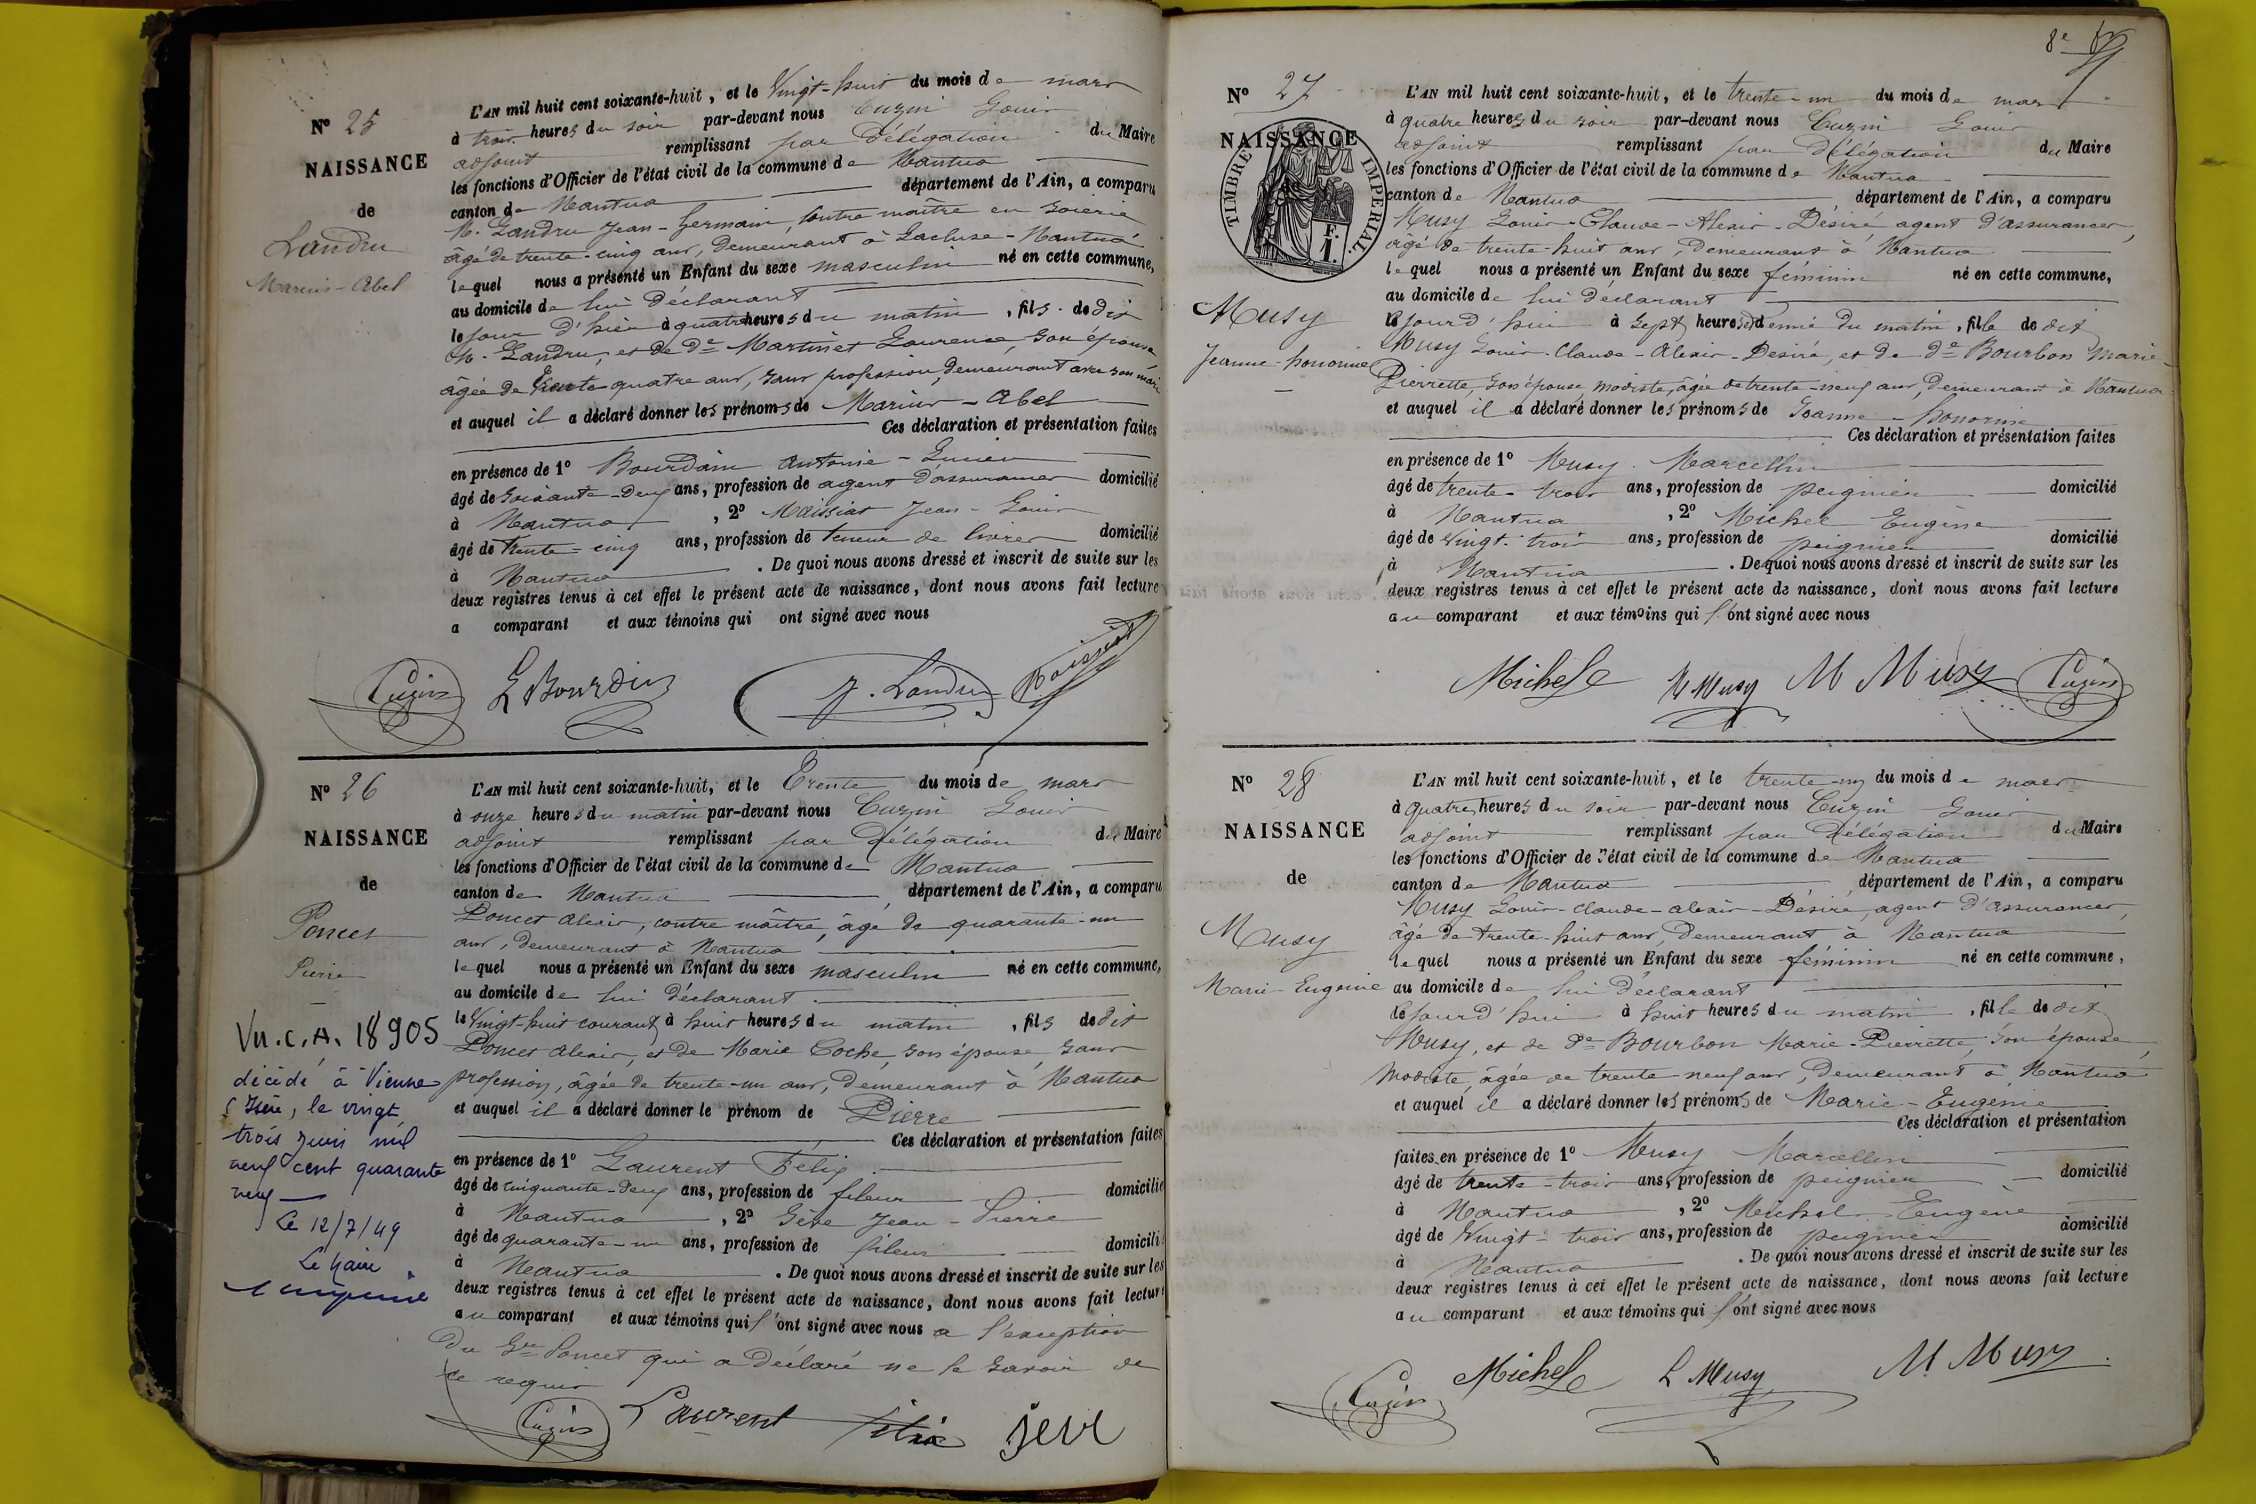 N° 25
NAISSANCE
de
Landru
Marius-Abel
L'AN mil huit cent soixante-huit, et le Vingt-huit du mois de mars
à trois heures du soir par-devant nous Cuzin Louis
adjoint remplissant par Délégation du Maire
les fonctions d'Officier de l'état civil de la commune de Nantua
canton de Nantua département de l'Ain, a comparu
M. Landru Jean-Germain, contre maître en soierie
âgé de trente-cinq ans, demeurant à Lacluse-Nantua
lequel nous a présenté un Enfant du sexe masculin né en cette commune,
au domicile de lui déclarant
le jour d'hier à quatre heures du matin, fils de dit
M. Landru, et de De Martinet Laurence, son épouse
âgée de trente quatre ans, sans profession, demeurant avec son mari
et auquel il a déclaré donner les prénoms de Marius-Abel
Ces déclaration et présentation faites
en présence de 1° Bourdin Antonie-Lucien
âgé de soixante-deux ans, profession de agent d'assurances domicilié
à Nantua, 2° Maissiat Jean-Louis
âgé de trente-cinq ans, profession de teneur de livres domicilié
à Nantua. De quoi nous avons dressé et inscrit de suite sur les
deux registres tenus à cet effet le présent acte de naissance, dont nous avons fait lecture
a comparant et aux témoins qui ont signé avec nous
Cuzin L Bourdin J. Landru Maissiat
N° 26
NAISSANCE
de
Poncet
Pierre
Vu. C. A. 18905
décédé à Vienne
(Isère, le vingt
trois juin mil
neuf cent quarante
neuf
Le 12/7/49
Le Maire
L'AN mil huit cent soixante-huit, et le Trente du mois de mars
à onze heures du matin par-devant nous Cuzin Louis
adjoint remplissant par Délégation du Maire
les fonctions d'Officier de l'état civil de la commune de Nantua
canton de Nantua, département de l'Ain, a comparu
Poncet Alexis, contre maître, âgé de quarante-un
ans, demeurant à Nantua
lequel nous a présenté un Enfant du sexe masculin né en cette commune,
au domicile de lui déclarant
le Vingt-huit courant à huit heures du matin, fils de dit
Poncet Alexis, et de Marie Coche, son épouse, sans
profession, âgée de trente-un ans, demeurant à Nantua
et auquel il a déclaré donner le prénom de Pierre
Ces déclaration et présentation faites
en présence de 1° Laurent Félix
âgé de cinquante-deux ans, profession de fileur domicilié
à Nantua, 2° Gève Jean-Pierre
âgé de quarante-un ans, profession de fileur domicilié
à Nantua. De quoi nous avons dressé et inscrit de suite sur les
deux registres tenus à cet effet le présent acte de naissance, dont nous avons fait lecture
au comparant et aux témoins qui l'ont signé avec nous a l'exception
Du Sr Poncet qui a Déclaré ne le savoir de
ce requis
Cuzin Laurent félix jeve
8e
N° 27
NAISSANCE
de
TIMBRE IMPERIAL.
1 F.
Musy
Jeanne-honorine
L'AN mil huit cent soixante-huit, et le trente-un du mois de mars
à quatre heures du soir par-devant nous Cuzin Louis
adjoint remplissant par Délégation du Maire
les fonctions d'Officier de l'état civil de la commune de Nantua
canton de Nantua, département de l'Ain, a comparu
Musy Louis-Claude-Alexis-Désiré agent d'assurances,
âgé de trente-huit ans, demeurant à Nantua
lequel nous a présenté un Enfant du sexe féminin né en cette commune,
au domicile de lui déclarant
le jourd'hui à sept heures et demie du matin, fille de dit
Musy Louis-Claude-Alexis-Desiré, et de De Bourbon Marie-
Pierrette, son épouse, modiste, âgée de trente-neuf ans, demeurant à Nantua
et auquel il a déclaré donner les prénoms de Jeanne-honorine
Ces déclaration et présentation faites
en présence de 1° Musy Marcellin
âgé de trente-trois ans, profession de peignier domicilié
à Nantua, 2° Michel Eugène
âgé de vingt-trois ans, profession de peignier domicilié
à Nantua. De quoi nous avons dressé et inscrit de suite sur les
deux registres tenus à cet effet le présent acte de naissance, dont nous avons fait lecture
au comparant et aux témoins qui l'ont signé avec nous
Michel e L Musy M Musy Cuzin
N° 28
NAISSANCE
de
Musy
Marie-Eugénie
L'AN mil huit cent soixante-huit, et le trente-un du mois de mars
à quatre heures du soir par-devant nous Cuzin Louis
adjoint remplissant par Délégation du Maire
les fonctions d'Officier de l'état civil de la commune de Nantua
canton de Nantua, département de l'Ain, a comparu
Musy Louis-Claude-Alexis-Désiré, agent d'assurances,
âgé de trente-huit ans, demeurant à Nantua
lequel nous a présenté un Enfant du sexe féminin né en cette commune,
au domicile de lui déclarant
le jourd'hui à huit heures du matin, fille de dit
Musy, et de De Bourbon Marie-Pierrette, son épouse,
Modiste, âgée de trente neuf ans, demeurant à Nantua
et auquel il a déclaré donner les prénoms de Marie-Eugénie
Ces déclaration et présentation
faites en présence de 1° Musy Marcellin
âgé de trente-trois ans, profession de peignier domicilié
à Nantua, 2° Michel Eugène
âgé de Vingt-trois ans, profession de peignier domicilié
à Nantua. De quoi nous avons dressé et inscrit de suite sur les
deux registres tenus à cet effet le présent acte de naissance, dont nous avons fait lecture
au comparant et aux témoins qui l'ont signé avec nous
Cuzin Michel e L Musy M. Musy